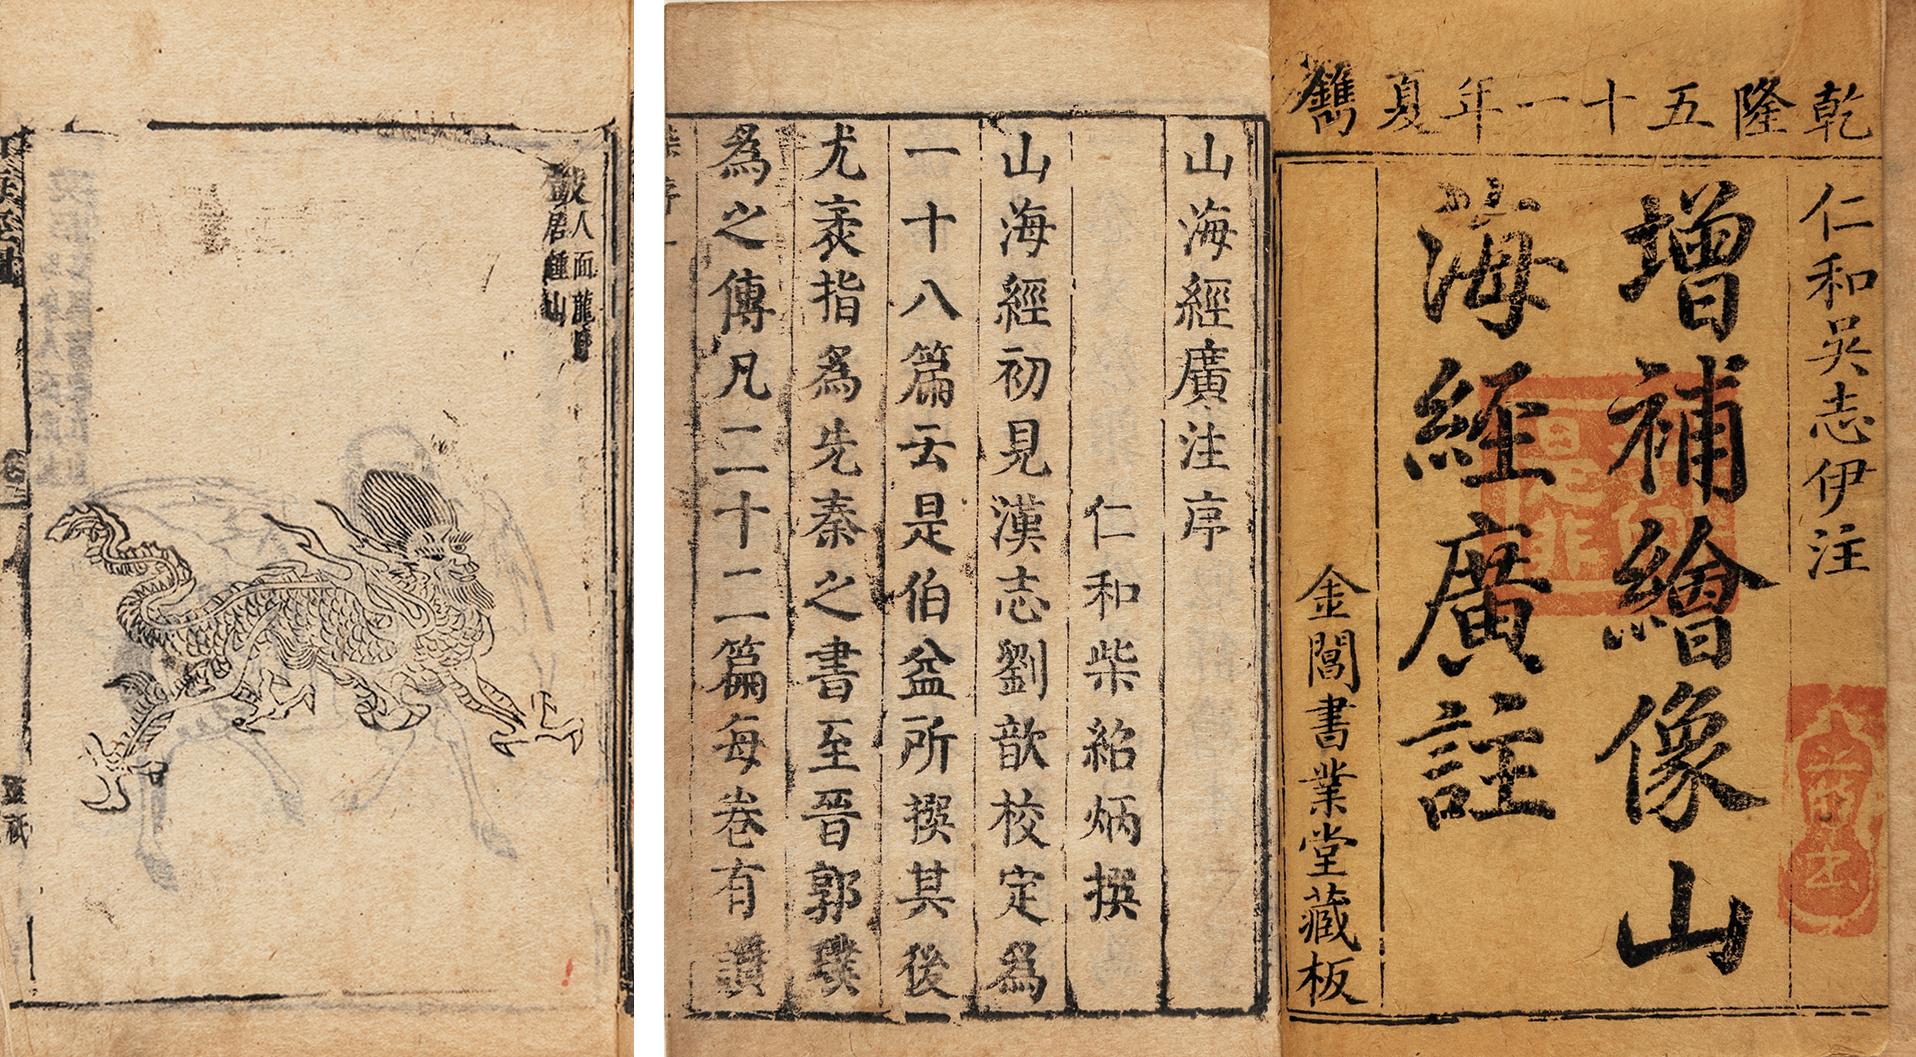 乾隆五十一年夏鐫
仁和吳志伊注
增補繪像山
海經廣註
金閶書業堂藏板
山海經廣注序
仁和柴紹炳撰
山海經初見漢志劉歆校定為
一十八篇云是伯益所撰其後
尤袤指為先秦之書至晉郭璞
為之傳凡二十二篇每卷有讚
人面龍身
居鍾山